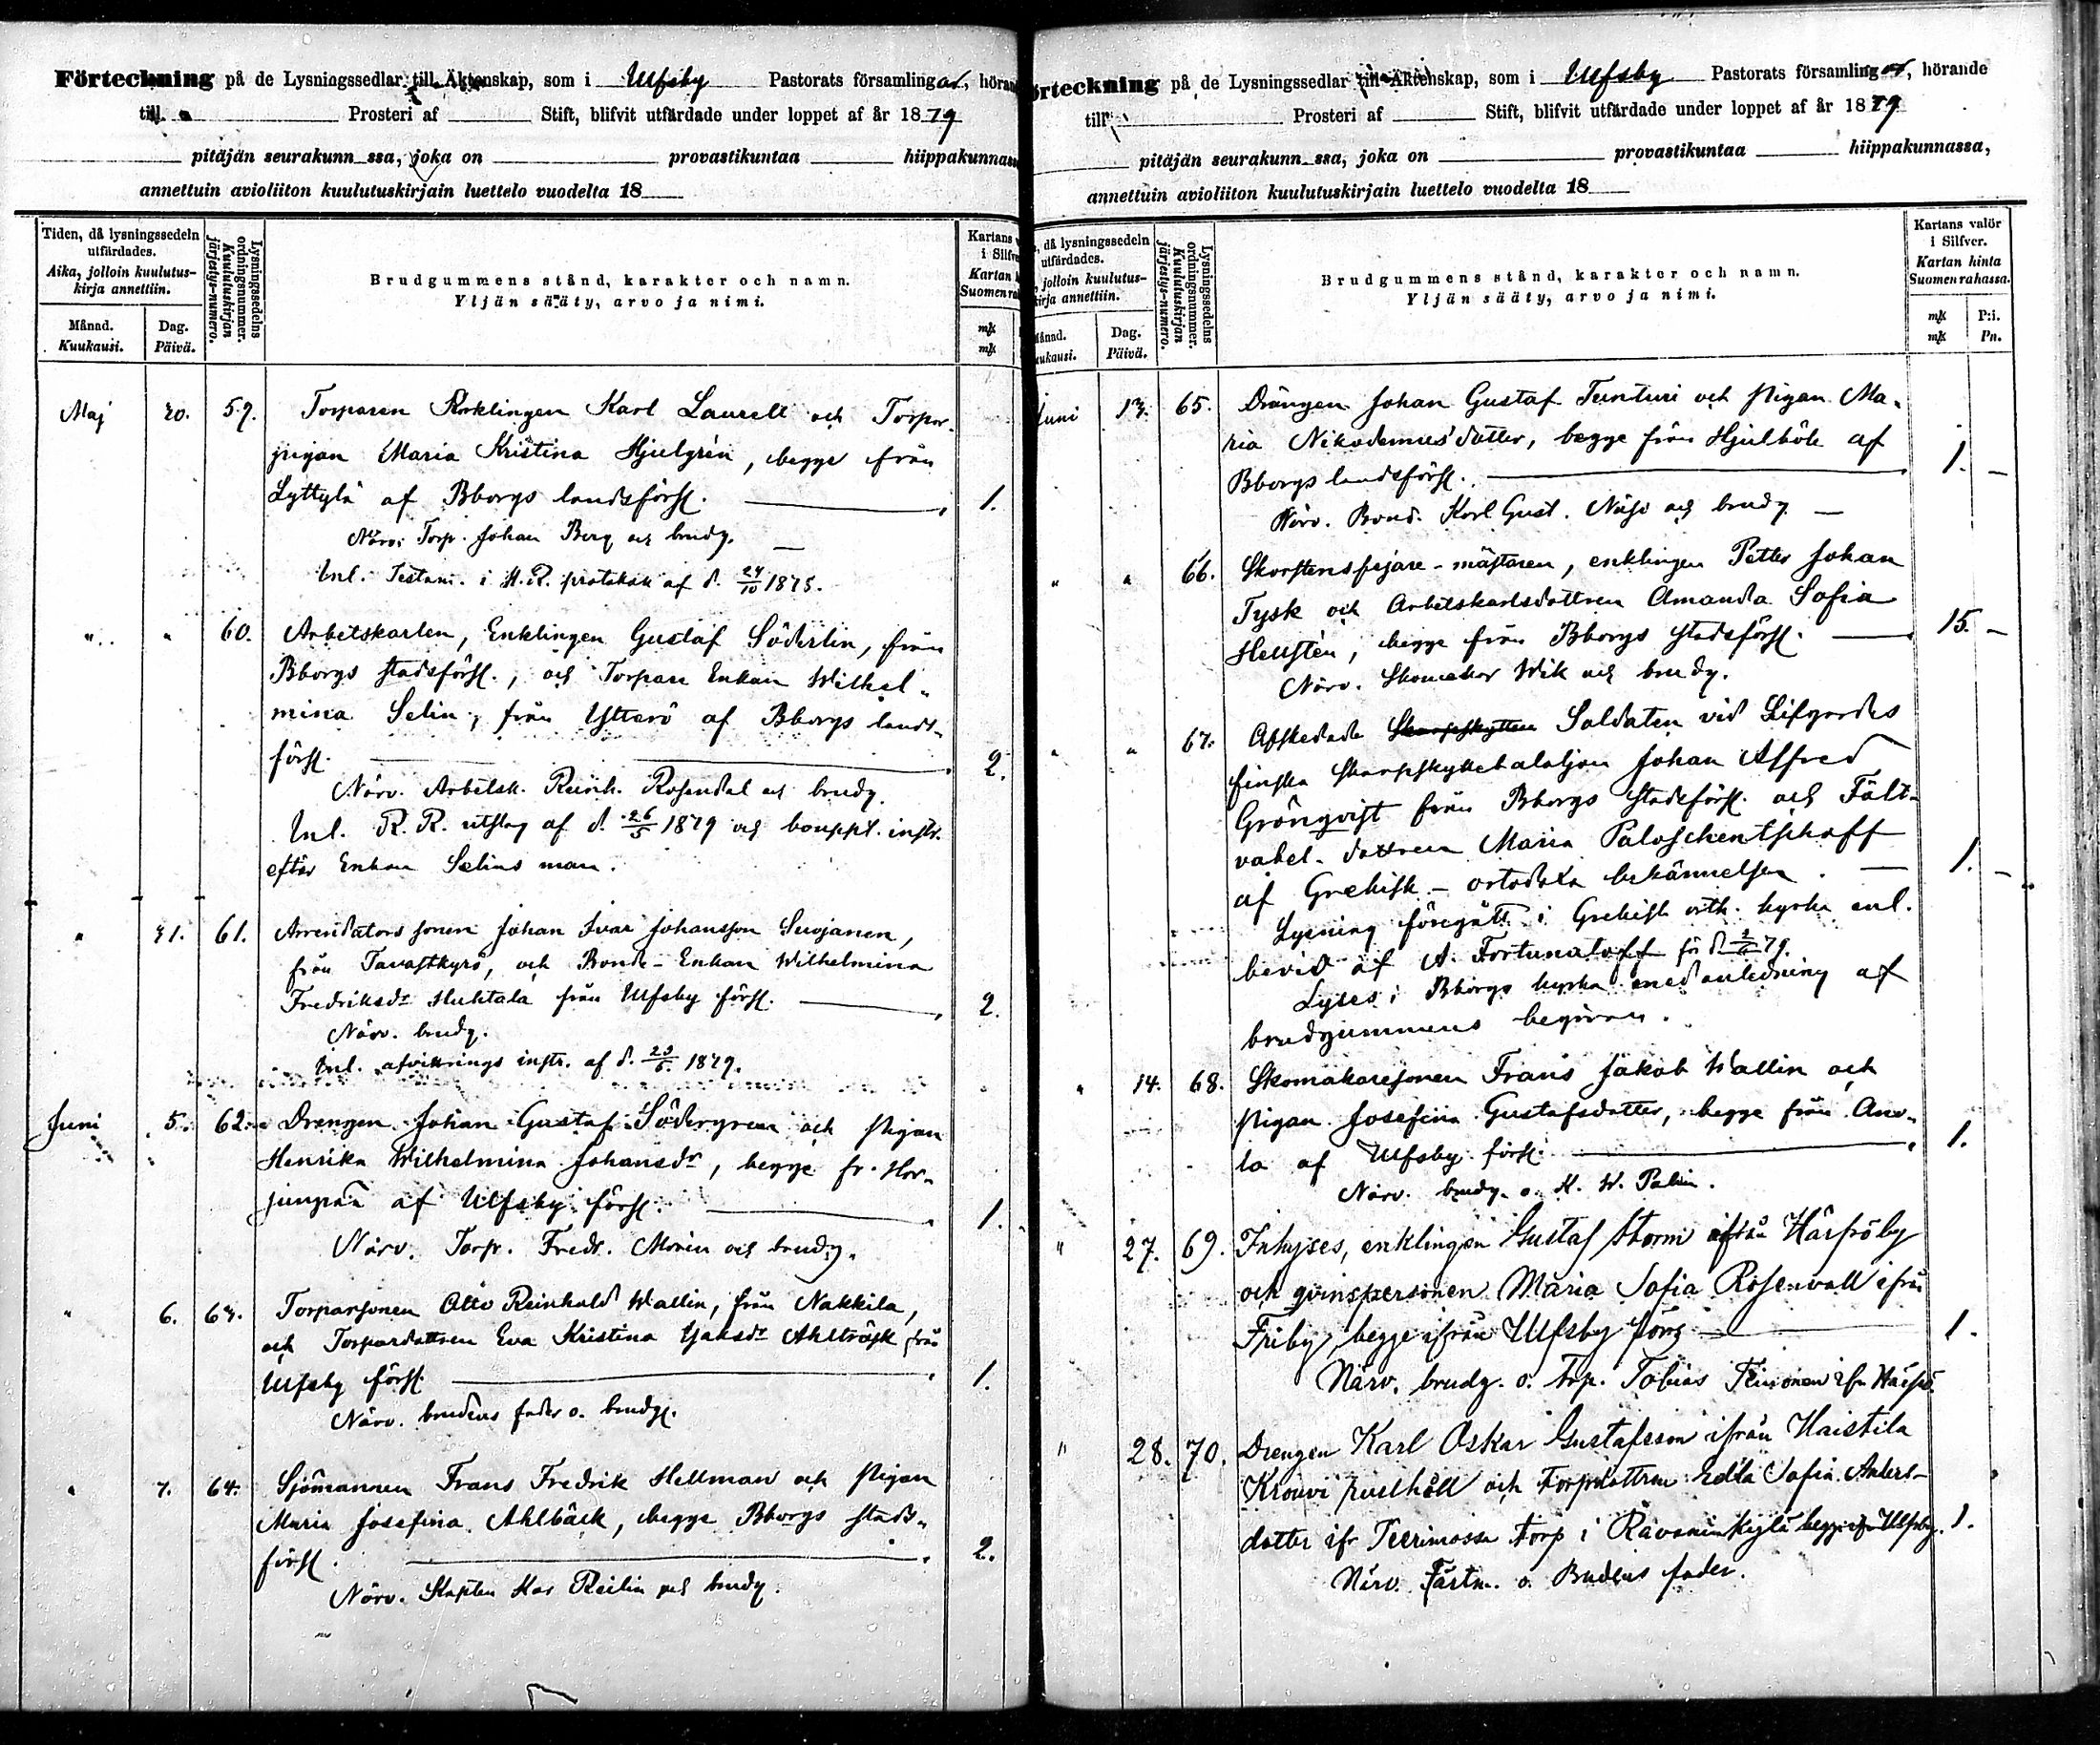 Förteckning på de Lysningssedlar till Äktenskap, som i Ulfsby Pastorats församlingar, höran
till Prosteri af Stift, blifvit utfärdade under loppet af år 1879
pitäjän seurakunn ssa, joka on provastikuntaa hiippakunnass
annettuin avioliiton kuulutuskirjain luettelo vuodelta 18
Tiden, då lysningssedeln utfärdades.
Aika, jolloin kuulutuskirja annettiin.
Månad. Kuukausi.
Dag. Päivä.
Lysningssedelns ordningsnummer.
Kuulutuskirjan järjestys-numero.
Brudgummens stånd, karakter och namn.
Yljän sääty, arvo ja nimi.
Kartans v
i Silfve
Kartan h
Suomen ra
mk
mk
Maj 20. 59. Torparen Enklingen Karl Laurell och Torpar-
pigan Maria Kristina Hjulgrén, begge från
Lyttylä af Bborgs landsförsl. 1.
Närv. Torp. Johan Berg och brudg.
Inl. Testam. i H.R. protokoll af d. 24/10 1875.
" " 60. Arbetskarlen, Enklingen Gustaf Söderlin, från
Bborgs stadsförsl., och Torpare Enkan Wilhel-
mina Selin, från Ytterö af Bborgs lands-
försl. 2.
Närv. Arbetsk. Reinh. Rosendal och brudg.
Inl. R. R. utslag af d. 26/5 1879 och bouppt. instr.
efter Enkan Selins man.
" 31. 61. Arrendators sonen Johan Ivar Johansson Suojanen,
från Tavastkyrö, och Bonde-Enkan Wilhelmina
Fredriksdr Huhtala från Ulfsby försl. 2.
Närv. brudg.
Inl. afvittrings instr. af d. 23/5 1879.
Juni 5. 62. Drengen Johan Gustaf Södergren och pigan
Henrika Wilhelmina Johansdr, begge fr. Har-
junpää af Ulfsby försl. 1.
Närv. Torp. Fredr. Morin och brudg.
" 6. 63. Torparsonen Otto Reinhold Wallin, från Nakkila,
och Torpardottren Eva Kristina Isaksdr Ahlträsk från
Ulfsby försl. 1.
Närv. brudens fader o. brudg.
" 7. 64. Sjömannen Frans Fredrik Hellman och pigan
Maria Josefina Ahlbäck, begge Bborgs stads-
försl. 2.
Närv. Kapten Reilin och brudg.
örteckning på de Lysningssedlar till Äktenskap, som i Ulfsby Pastorats församlingar, hörande
till Prosteri af Stift, blifvit utfärdade under loppet af år 1879
pitäjän seurakunn ssa, joka on provastikuntaa hiippakunnassa,
annettuin avioliiton kuulutuskirjain luettelo vuodelta 18
, då lysningssedeln utfärdades.
, jolloin kuulutuskirja annettiin.
ånad. ukausi.
Dag. Päivä.
Lysningssedelns ordningsnummer.
Kuulutuskirjan järjestys-numero.
Brudgummens stånd, karakter och namn.
Yljän sääty, arvo ja nimi.
Kartans valör
i Silfver.
Kartan hinta
Suomen rahassa.
mk P:i.
mk Pn.
Juni 13. 65. Drängen Johan Gustaf Tunturi och pigan Ma-
ria Nikodemusdotter, begge från Hjulböle af
Bborgs landsförsl. 1. —
Närv. Bond. Karl Gust. Näsi och brudg. —
" " 66. Skorstensfejare-mästaren, enklingen Petter Johan
Tysk och Arbetskarlsdottren Amanda Sofia
Hellstén, begge från Bborgs stadsförsl. 15. —
Närv. Skomakar Wik och brudg.
" " 67. Afskedade Skarpskytten Soldaten vid Lifgardes
finska skarpskyttebataljon Johan Alfred
Grönqvist från Bborgs stadsförsl. och Fält-
vabel-dottren Maria Paloschentschoff
af Grekisk-ortodoxa bekännelsen. 1. —
Lysning föregått i Grekisk orth. kyrka enl.
bevis af A. Fortunatoff
Lyses i Bborgs kyrka med anledning af
brudgummens begäran.
" 14. 68. Skomakaresonen Frans Jakob Wallin och
pigan Josefina Gustafsdotter, begge från Ano-
la af Ulfsby försl. 1.
Närv. brudg. o. K. W. Palin.
" 27. 69. Inhyses, enklingen Gustaf Storm ifrån Härpöby
och qvinspersonen Maria Sofia Rosenvall ifrån
Friby, begge ifrån Ulfsby förs. 1.
Närv. brudg. o. torp. Tobias ifr. Härpö.
" 28. 70. Drengen Karl Oskar Gustafsson ifrån Haistila
Krouvi rusthåll och Torpdottren Edla Sofia Anders-
dotter ifr. Teerimossa torp i Ravaninkylä begge ifr. Ulfsby. 1.
Närv. Fästm. o. Brudens fader.